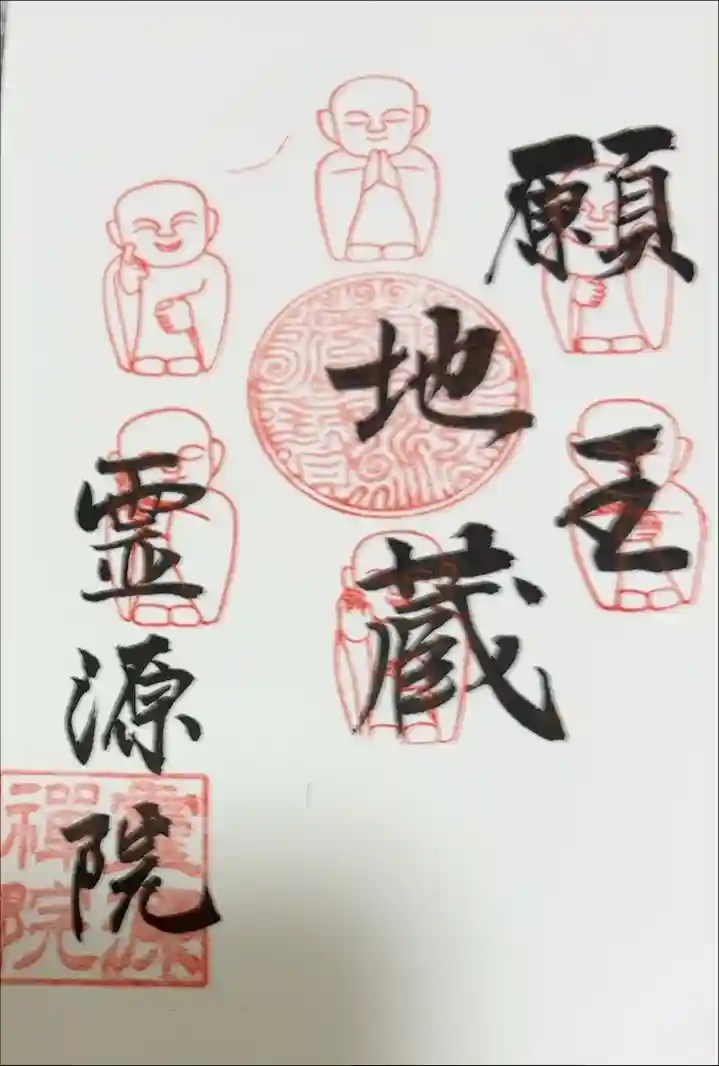 願王
地蔵
霊源院
霊源
禅院